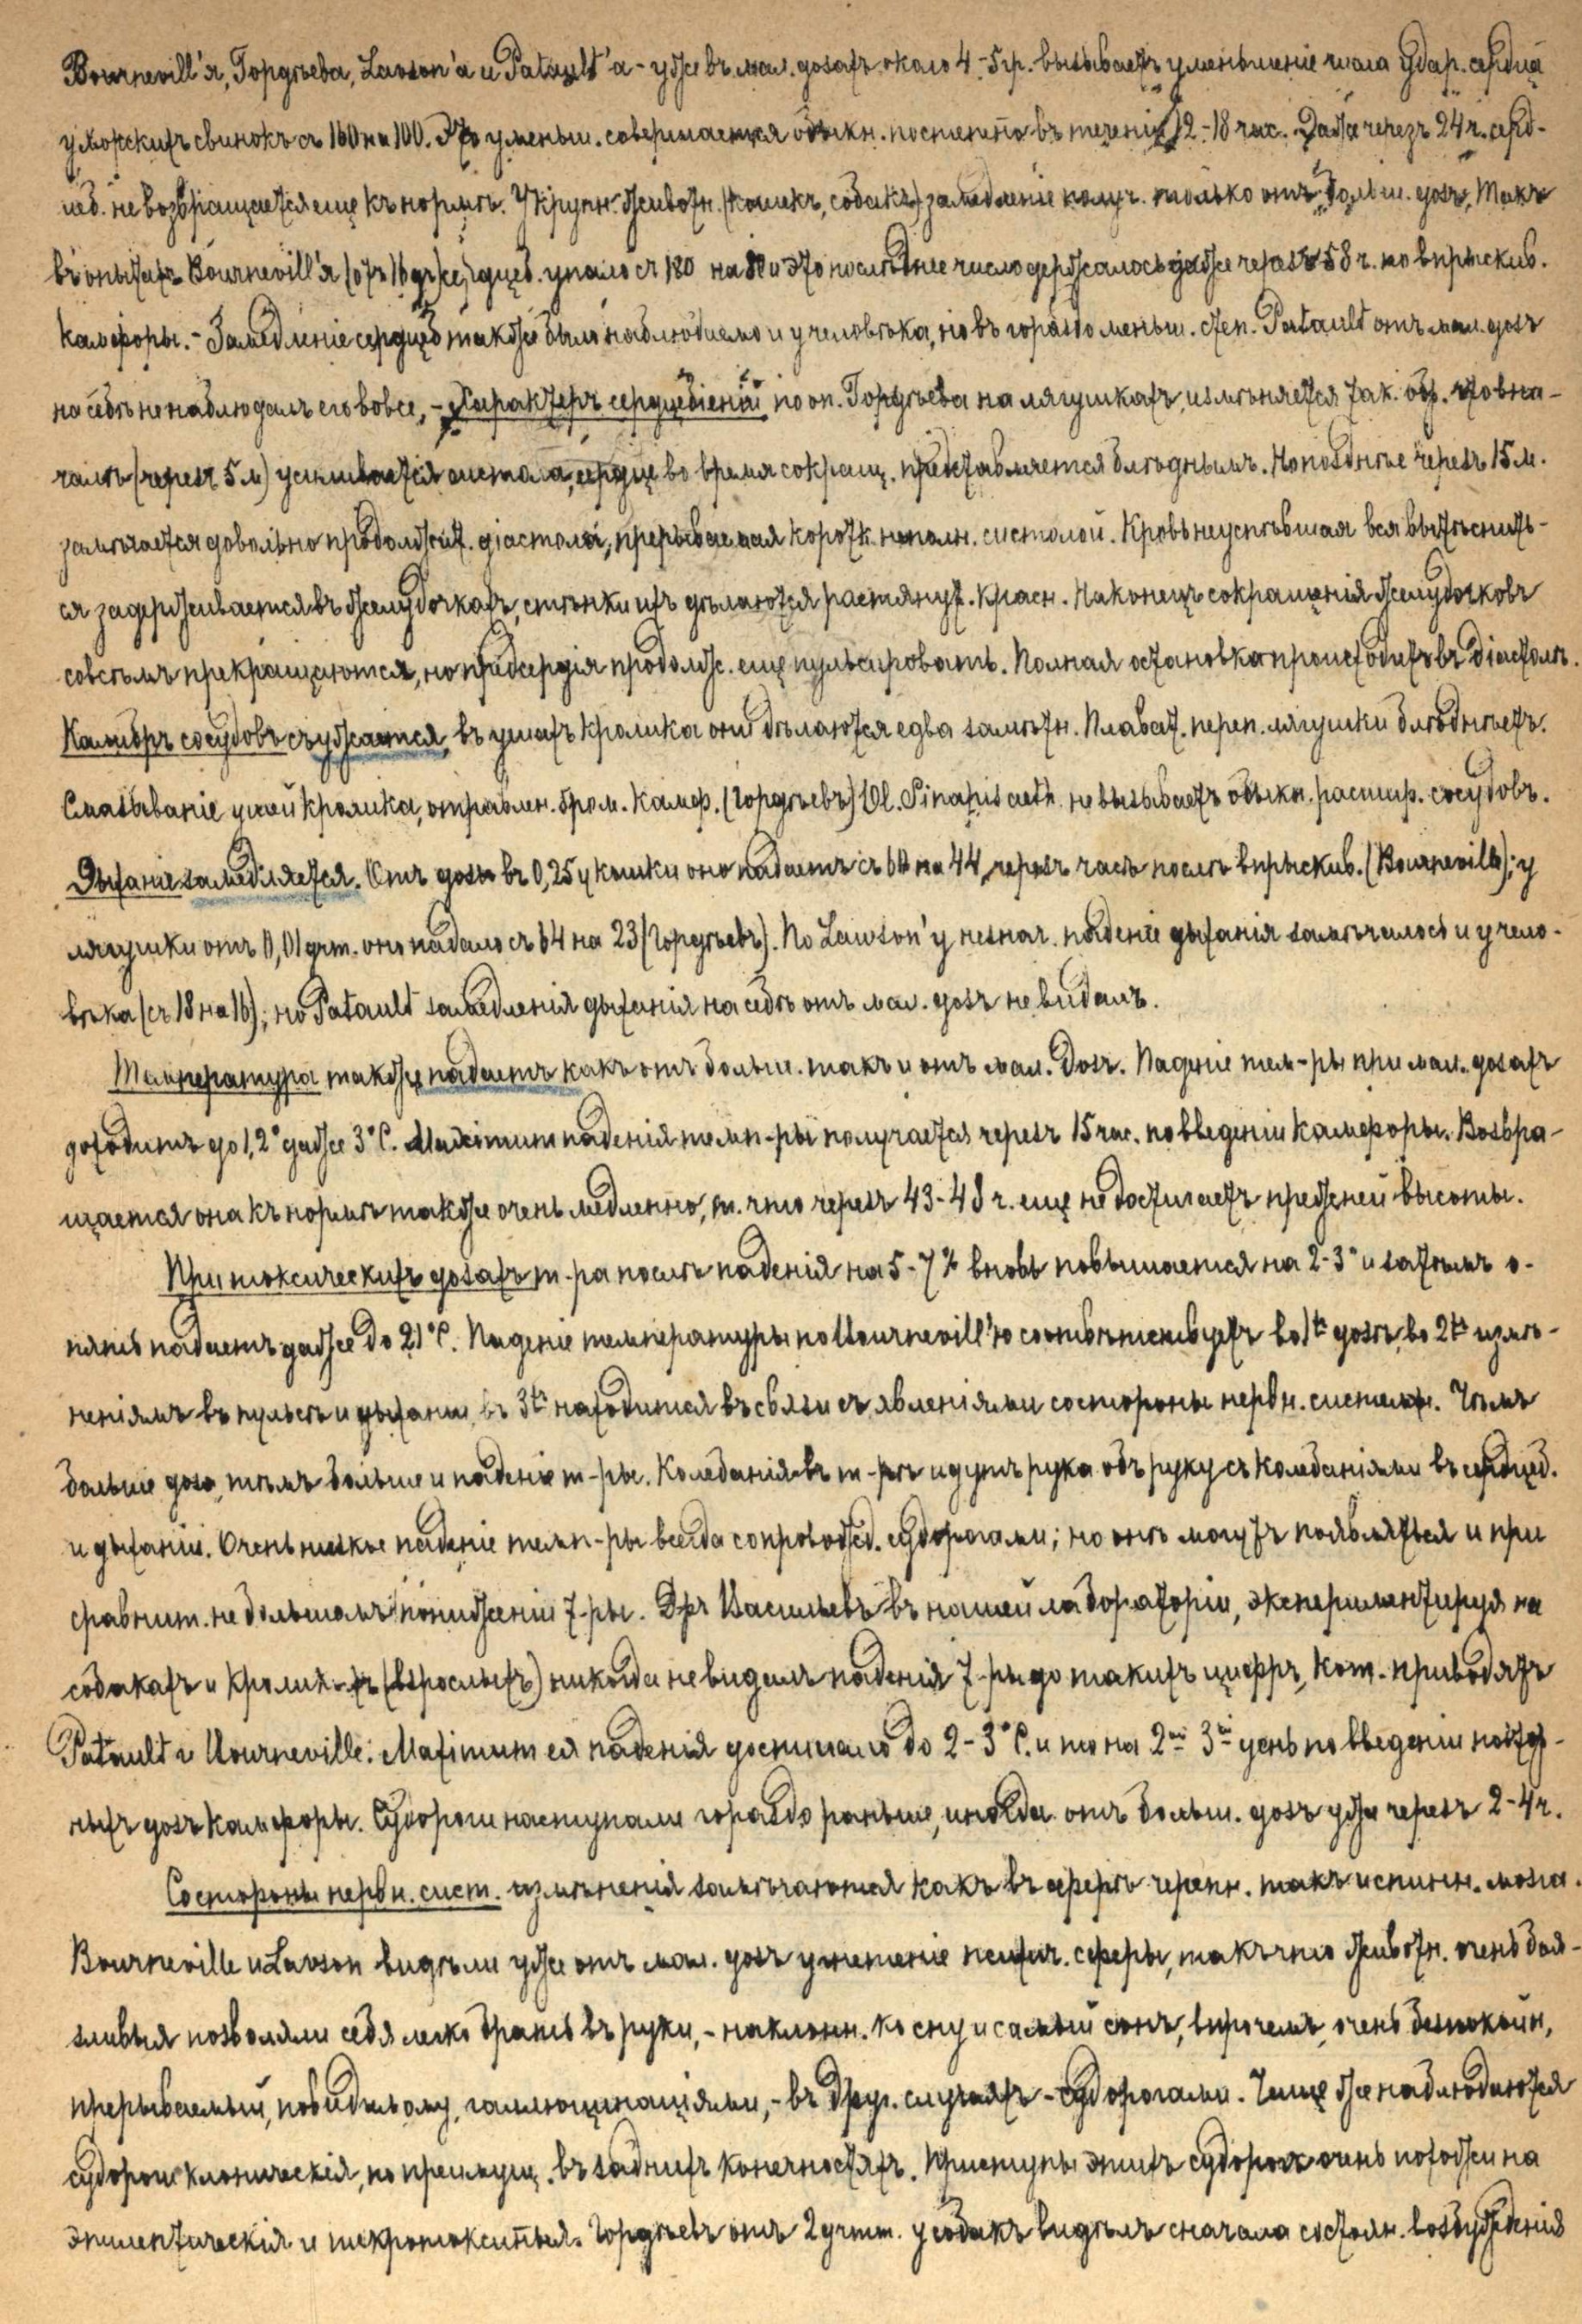 Bournevill'я, Гордѣева, Lawson'а и Patault'а - уже въ мал. дозахъ около 4-5 гр. вызываетъ уменьшеніе числа удар. сердца
у морскихъ свинокъ съ 160 на 100. Это уменьш. совершается обыкн. постепенно въ теченіи 12-18 час. Даже черезъ 24 ч. серд-
цеб. не возвращается еще къ нормѣ. У крупн. животн. (кошекъ, собакъ) замедленіе получ. только отъ больш. дозъ. Такъ
въ опытахъ Bournevill'я сердцеб. упало съ 180 на и это послѣднее число держалось даже черезъ 58 ч. по впрыскив.
камфоры. - Замедленіе сердцеб. также было наблюдаемо и у человѣка, но въ гораздо меньш. степ. Patault отъ мал. дозъ
на себѣ не наблюдалъ его вовсе, - Характеръ сердцебіеній по оп. Гордѣева на лягушкахъ, измѣняется так. обр. что вна-
чалѣ (черезъ 5 м) усиливается систола, сердце во время сокращ. представляется блѣднымъ. Но позднѣе черезъ 15 м.
замѣчается довольно продолжит. діастола, прерываемая коротк. неполн. систолой. Кровь неуспѣвшая вся вытѣснить-
ся задерживается въ желудочкахъ, стѣнки ихъ дѣлаются растянут. красн. Наконецъ сокращенія желудочковъ
совсѣмъ прекращаются, но предсердія продолж. еще пульсировать. Полная остановка происходитъ въ діастолѣ.
Калибръ сосудовъ съуживается, въ ушахъ кролика они дѣлаются едва замѣтн. Плават. переп. лягушки блѣднѣетъ.
Смазываніе ушей кролика, отравлен. бром. камф. (Гордѣевъ) Ol. Sinapis aeth. не вызываетъ обыкн. расшир. сосудовъ.
Дыханіе замедляется. Отъ дозы въ 0,25 у кошки оно падаетъ съ 60 на 44, черезъ часъ послѣ впрыскив. (Bourneville); у
лягушки отъ 0,01 grm. оно падало съ 64 на 23 (Гордѣевъ). По Lawson'у незнач. паденіе дыханія замѣчалось и у чело-
вѣка (съ 18 на 16); но Patault замедленія дыханія на себѣ отъ мал. дозъ не видалъ.
Температура также падаетъ какъ отъ больш. такъ и отъ мал. дозъ. Паденіе тем-ры при мал. дозахъ
доходитъ до 1,2° даже 3°C. Maximum паденія темп-ры получается черезъ 15 час. по введеніи камфоры. Возвра-
щается она къ нормѣ также очень медленно, т. что черезъ 43-48 ч. еще не достигаетъ прежней высоты.
При токсическихъ дозахъ т-ра послѣ паденія на 5-7° вновь повышается на 2-3° и затѣмъ о-
пять падаетъ даже до 21°C. Паденіе температуры по Bournevill'ю соотвѣтствуетъ во 1хъ дозѣ, во 2хъ измѣ-
неніямъ въ пульсѣ и дыханіи, въ 3хъ находится въ связи съ явленіями со стороны нервн. системы. Чѣмъ
больше доза, тѣмъ больше и паденіе т-ры. Колебанія въ т-рѣ идутъ рука объ руку съ колебаніями въ сердцеб.
и дыханіи. Очень низкое паденіе темп-ры всегда сопровожд. судорогами; но онѣ могутъ появляться и при
сравнит. небольшомъ пониженіи т-ры. Дръ Васильевъ въ нашей лабораторіи, экспериментируя на
собакахъ и кролик-хъ (взрослыхъ) никогда не видалъ паденія т-ры до такихъ цифръ, кот. приводятъ
Patault и Bourneville. Maximum ея паденія достигало до 2-3°C. и то на 2й 3й день по введеніи повтор-
ныхъ дозъ камфоры. Судороги наступали гораздо раньше, иногда отъ больш. дозъ уже черезъ 2-4 ч.
Со стороны нервн. сист. измѣненія замѣчаются какъ въ сферѣ черепн. такъ и спинн. мозга.
Bourneville и Lawson видѣли уже отъ мал. дозъ угнетеніе психич. сферы, такъ что животн. очень бояз-
ливыя позволяли себя легко брать въ руки, - наклонн. ко сну и самый сонъ, впрочемъ, очень безпокойн,
прерываемый, повидимому, галлюцинаціями, - въ друг. случаяхъ - судорогами. Чаще же наблюдаются
судороги клоническія, по преимущ. въ заднихъ конечностяхъ. Приступы этихъ судорогъ очень похожи на
эпилептическія и пикротоксинныя. Гордѣевъ отъ 2 grmm. у собакъ видѣлъ сначала состоян. возбужденія